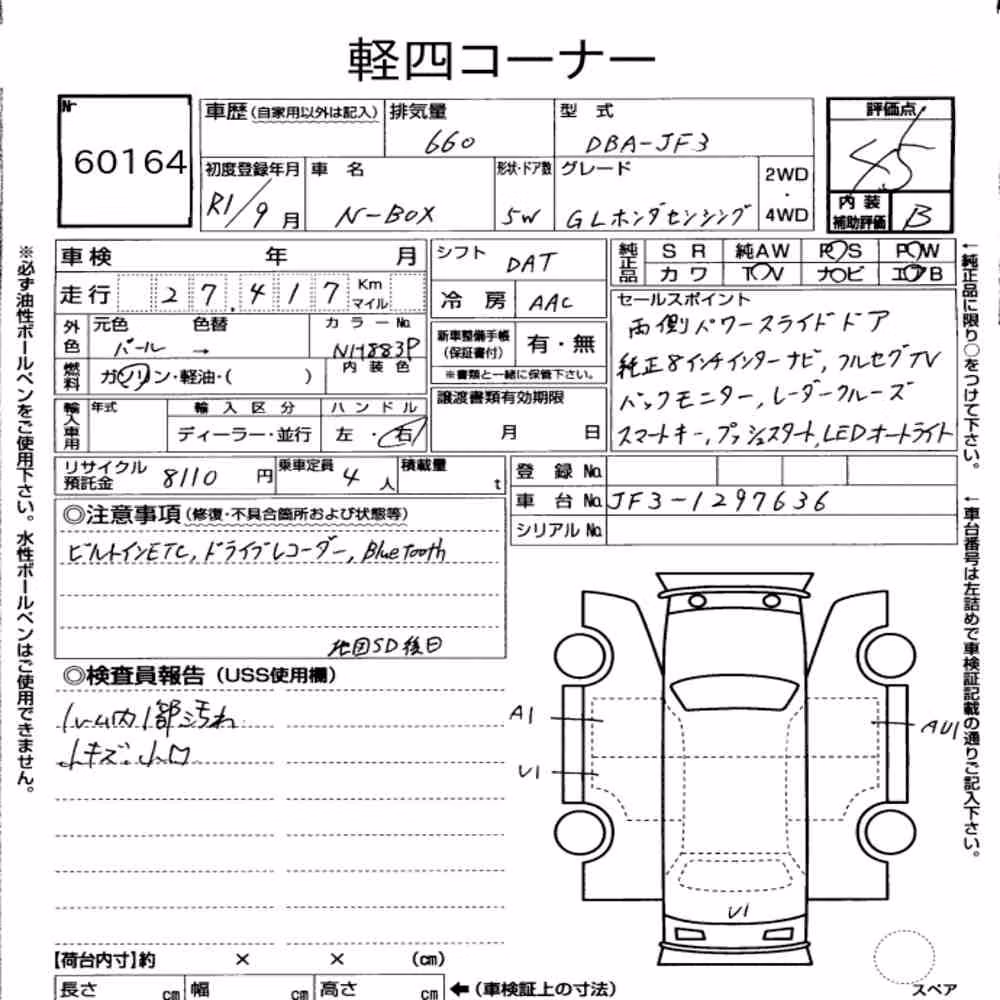 軽四コーナー
No.
60164
車歴(自家用以外は記入)
排気量
660
型 式
DBA-JF3
評価点
4.5
初度登録年月
R1/9月
車 名
N-BOX
形状・ドア数
5W
グレード
GLホンダセンシング
2WD
・
4WD
内装補助評価
B
車検 年 月
走行 27,417 Km マイル
外色
元色 パール
色替 →
カラーNo.
NH883P
燃料
ガソリン・軽油・( )
内装色
輸入車用
年式
輸入区分
ディーラー・並行
ハンドル
左・右
シフト
DAT
冷房
AAC
新車整備手帳(保証書付)
有・無
※書類と一緒に保管下さい。
譲渡書類有効期限
月 日
純正品
SR 純AW P/S P/W
カワ TV ナビ エアB
セールスポイント
両側パワースライドドア
純正8インチインターナビ,フルセグTV
バックモニター,レーダークルーズ
スマートキー,プッシュスタート,LEDオートライト
リサイクル預託金
8110 円
乗車定員
4 人
積載量
t
登録No.
車台No. JF3-1297636
シリアルNo.
◎注意事項(修復・不具合箇所および状態等)
ビルトインETC,ドライブレコーダー,Bluetooth
地図SD後日
◎検査員報告(USS使用欄)
ルーム内1部汚れ
小キズ・小凹
A1
U1
AU1
U1
【荷台内寸】約 × × (cm)
長さ cm 幅 cm 高さ cm ←(車検証上の寸法)
スペア
※必ず油性ボールペンをご使用下さい。水性ボールペンはご使用できません。
←純正品に限り○をつけて下さい。
←車台番号は左詰めで車検証記載の通りご記入下さい。